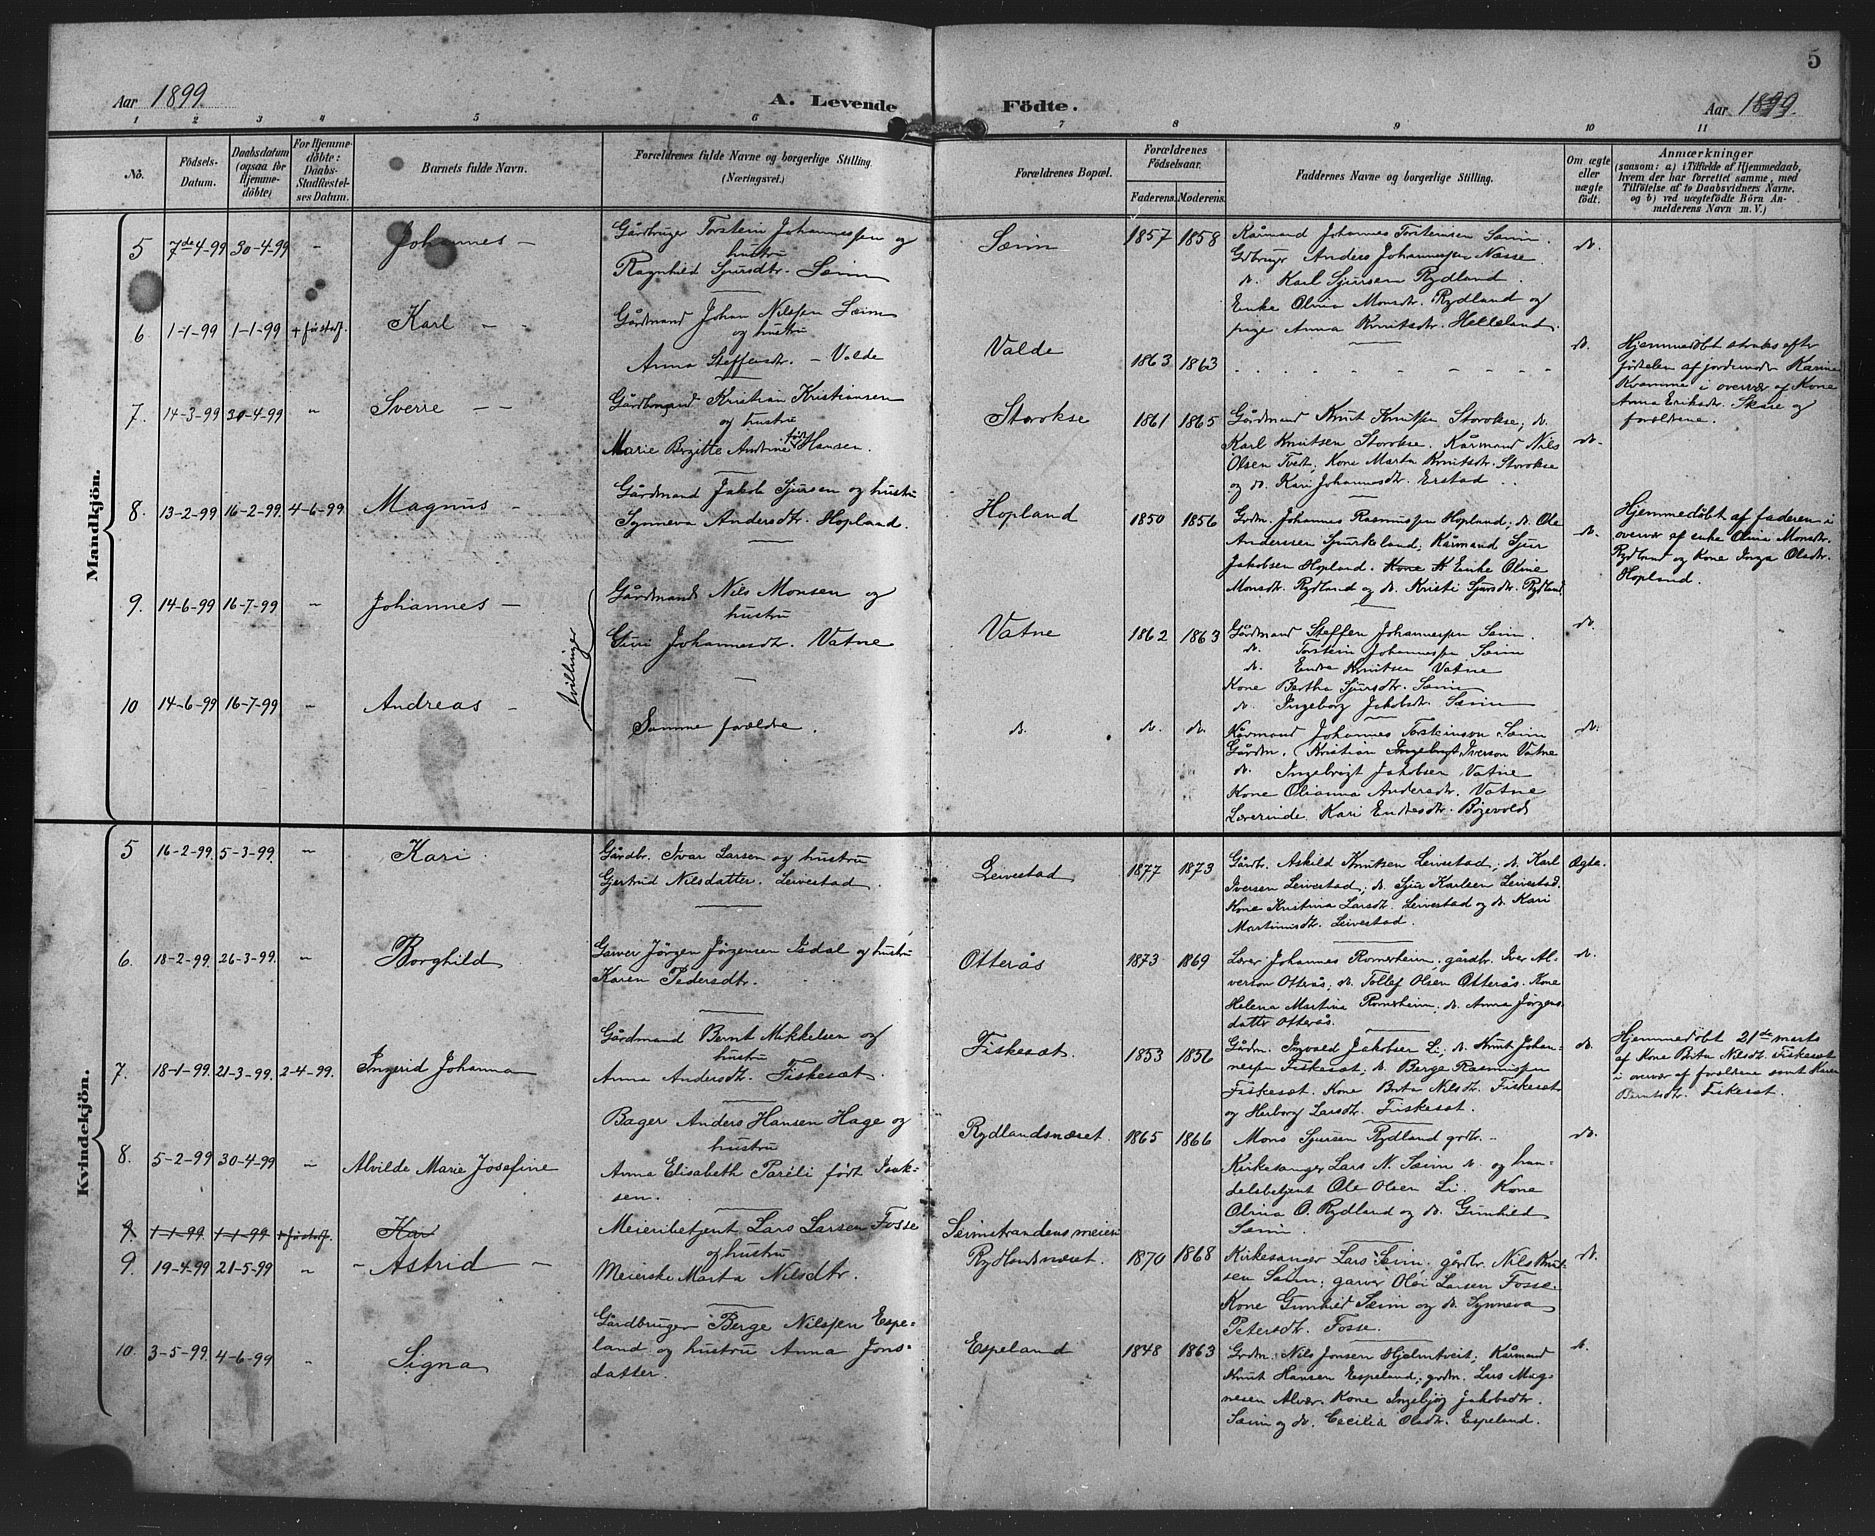 5
Aar 1899.
A. Levende Födte.
Aar 1899.
1 2 3 4 5 6 7 8 9 10 11
No.
Födsels-Datum.
Daabsdatum (ogsaa för Hjemme-döbte)
For Hjemme-döbte: Daabs-Stadfæstel-ses Datum.
Barnets fulde Navn.
Forældrenes fulde Navne og borgerlige Stilling. (Næringsvei.)
Forældrenes Bopæl.
Forældrenes Födselsaar.
Faderens. Moderens.
Faddernes Navne og borgerlige Stilling.
Om ægte eller uægte födt.
Anmærkninger
(saasom: a) i Tilfælde af Hjemmedaab, hvem der har forrettet samme, med Tilföielse af to Daabsvidners Navne, og b) ved uægtefödte Börn An-melderens Navn m. V.)
Mandkjön.
5 7de-4-99 30-4-99 – Johannes –
Gårdbruger Torstein Johannessen og
hustru
Ragnhild Sjursdtr. Sæim
Sæim
1857 1858
Kårmand Johannes Torsteinsen Sæim.
Gdbruger Anders Johannesen Næsse.
do. Karl Sjursen Rydland.
Enke Olina Monsdtr. Rydland og
pige Anna Knutsdtr. Helleland.
do.
6 1-1-99 1-1-99 + før stadf. Karl – –
Gårdmand Johan Nilsen Sæim
og hustru
Anna Steffensdtr. – Valde
Valde
1863 1863
do.
Hjemmedøbt straks efter
fødselen af jordmoder Karine
Kramme i overvær af Kone
Anna Eriksdtr. Skare og
forældrene.
7. 14-3-99 30-4-99 – Sverre – –
Gårdmand Kristian Kristiansen
og hustru
Marie Birgitte Andrine født Hansen.
Storokse
1861 1865
Gårdmand Knut Knutsen Storokse, do.
Karl Knutsen Storokse. Kårmand Nils
Olsen Tvedt; Kone Marta Knutsdtr. Storokse
og do. Kari Johannesdtr. Erstad
do.
8. 13-2-99 16-2-99 4-6-99 Magnus –
Gårdmand Jakob Sjursen og hustru
Synneva Andersdtr. Hopland.
Hopland
1850 1856
Grdm. Johannes Rasmussen Hopland; do. Ole
Anderssen Hjurkeland; Kårmand Sjur
Jakobsen Hopland. Kone K Enke Oline
Monsdtr. Rydland og do. Kristi Sjursdtr. Rydland
do.
Hjemmedøbt af faderen i
overvær af enke Olina Monsdtr.
Rydland og Kone Inga Olsdtr.
Hopland.
9. 14-6-99 16-7-99 – Johannes –
tvillinger
Gårdmand Nils Monsen og
hustru
Guri Johannesdtr. Vatne
Vatne
1862 1863
Gårdmand Steffen Johannessen Sæim.
do. Torstein Johannessen Sæim
do. Endre Knutsen Vatne
Kone Bertha Sjursdtr. Sæim
do. Ingeborg Jakobsdtr. Sæim
do.
10 14-6-99 16-7-99 – Andreas –
Samme forældre.
do. do. do.
Kårmand Johannes Torsteinson Sæim
Gårdm. Kristian Ingebrigt Iverson Vatne
do. Ingebrigt Jakobsen Vatne
Kone Olianna Andersdtr. Vatne
Lærerinde Kari Endresdtr.
do.
Kvindekjön.
5 16-2-99. 5-3-99. – Kari
Gårdbr. Ivar Larsen og hustru
Gjertrud Nilsdatter. Leivestad.
Leivestad
1877 1873
Gårdbr. Askild Knutsen Leivestad; do. Karl
Iversen Leivestad; do. Sjur Karlsen Leivestad.
Kone Kristina Larsdtr. Leivestad og do. Kari
Martinusdtr. Leivestad.
Ægte.
6. 18-2-99. 26-3-99. – Borghild
Garver Jörgen Jörgensen Isdal og hustru
Karen Pedersdtr.
Otterås
1873 1869
Lærer Johannes Romerheim, gårdbr. Iver Al-
verson Otterås; do. Tollef Olsen Otterås. Kone
Helena Martine Romerheim, do. Anna Jörgens
datter Otterås.
do.
7. 18-1-99. 21-3-99. 2-4-99. Ingrid Johanna
Gårdmand Bernt Mikkelsen og
hustru
Anna Andersdtr. Fiskeset.
Fiskeset.
1853 1856
Gårdm. Ingvald Jakobsen Li, do. Knut Johan-
nessen Fiskeset; do. Berge Rasmussen
Fiskeset. Kone Brita Nilsdtr. Fiskeset
og Herborg Larsdtr. Fiskeset.
do.
Hjemmedøbt 21de marts
af Kone Brita Nilsdtr. Fiskeset
i overvær af forældrene samt Karen
Berntsdtr. Fiskeset.
8. 5-2-99 30-4-99 – Alvilde Marie Josefine
Bager Anders Hansen Hage og
hustru
Anna Elisabeth Paréli født Isak-
sen.
Rydlandsnæset.
1865 1866
Mons Sjursen Rydland grdbr. –
Kirkesanger Lars N. Sæim do. og han-
delsbetjent Ole Olsen Li. Kone
Olina O. Rydland og do. Gunhild
Sæim.
do.
9 1-1-99 1-1-99 + før stadf. Kar
9. 19-4-99 21-5-99 – – Astrid –
Meieribetjent Lars Larsen Fosse
og hustru
Meierske Marta Nilsdtr.
Seimstrandens meieri
Rydlandsnæset.
1870 1868
Kirkesanger Lars Sæim, gårdbr. Nils Knut-
sen Sæim; garver Olai Larsen Fosse.
Kone Gunhild Sæim og do. Synneva
Petersdtr. Fosse.
do.
10. 3-5-99. 4-6-99 – Signa
Gårdbruger Berge Nilssen Espe-
land og hustru Anna Jons-
datter.
Espeland
1848 1863
Grdm. Nils Jonsen Hjelmtveit; Kårmand
Knut Hansen Espeland; grdm. Lars Mag-
nesen Alvær. Kone Ingebjør Jakobsdtr.
Sæim og do. Cecilia Olsdtr. Espeland.
do.